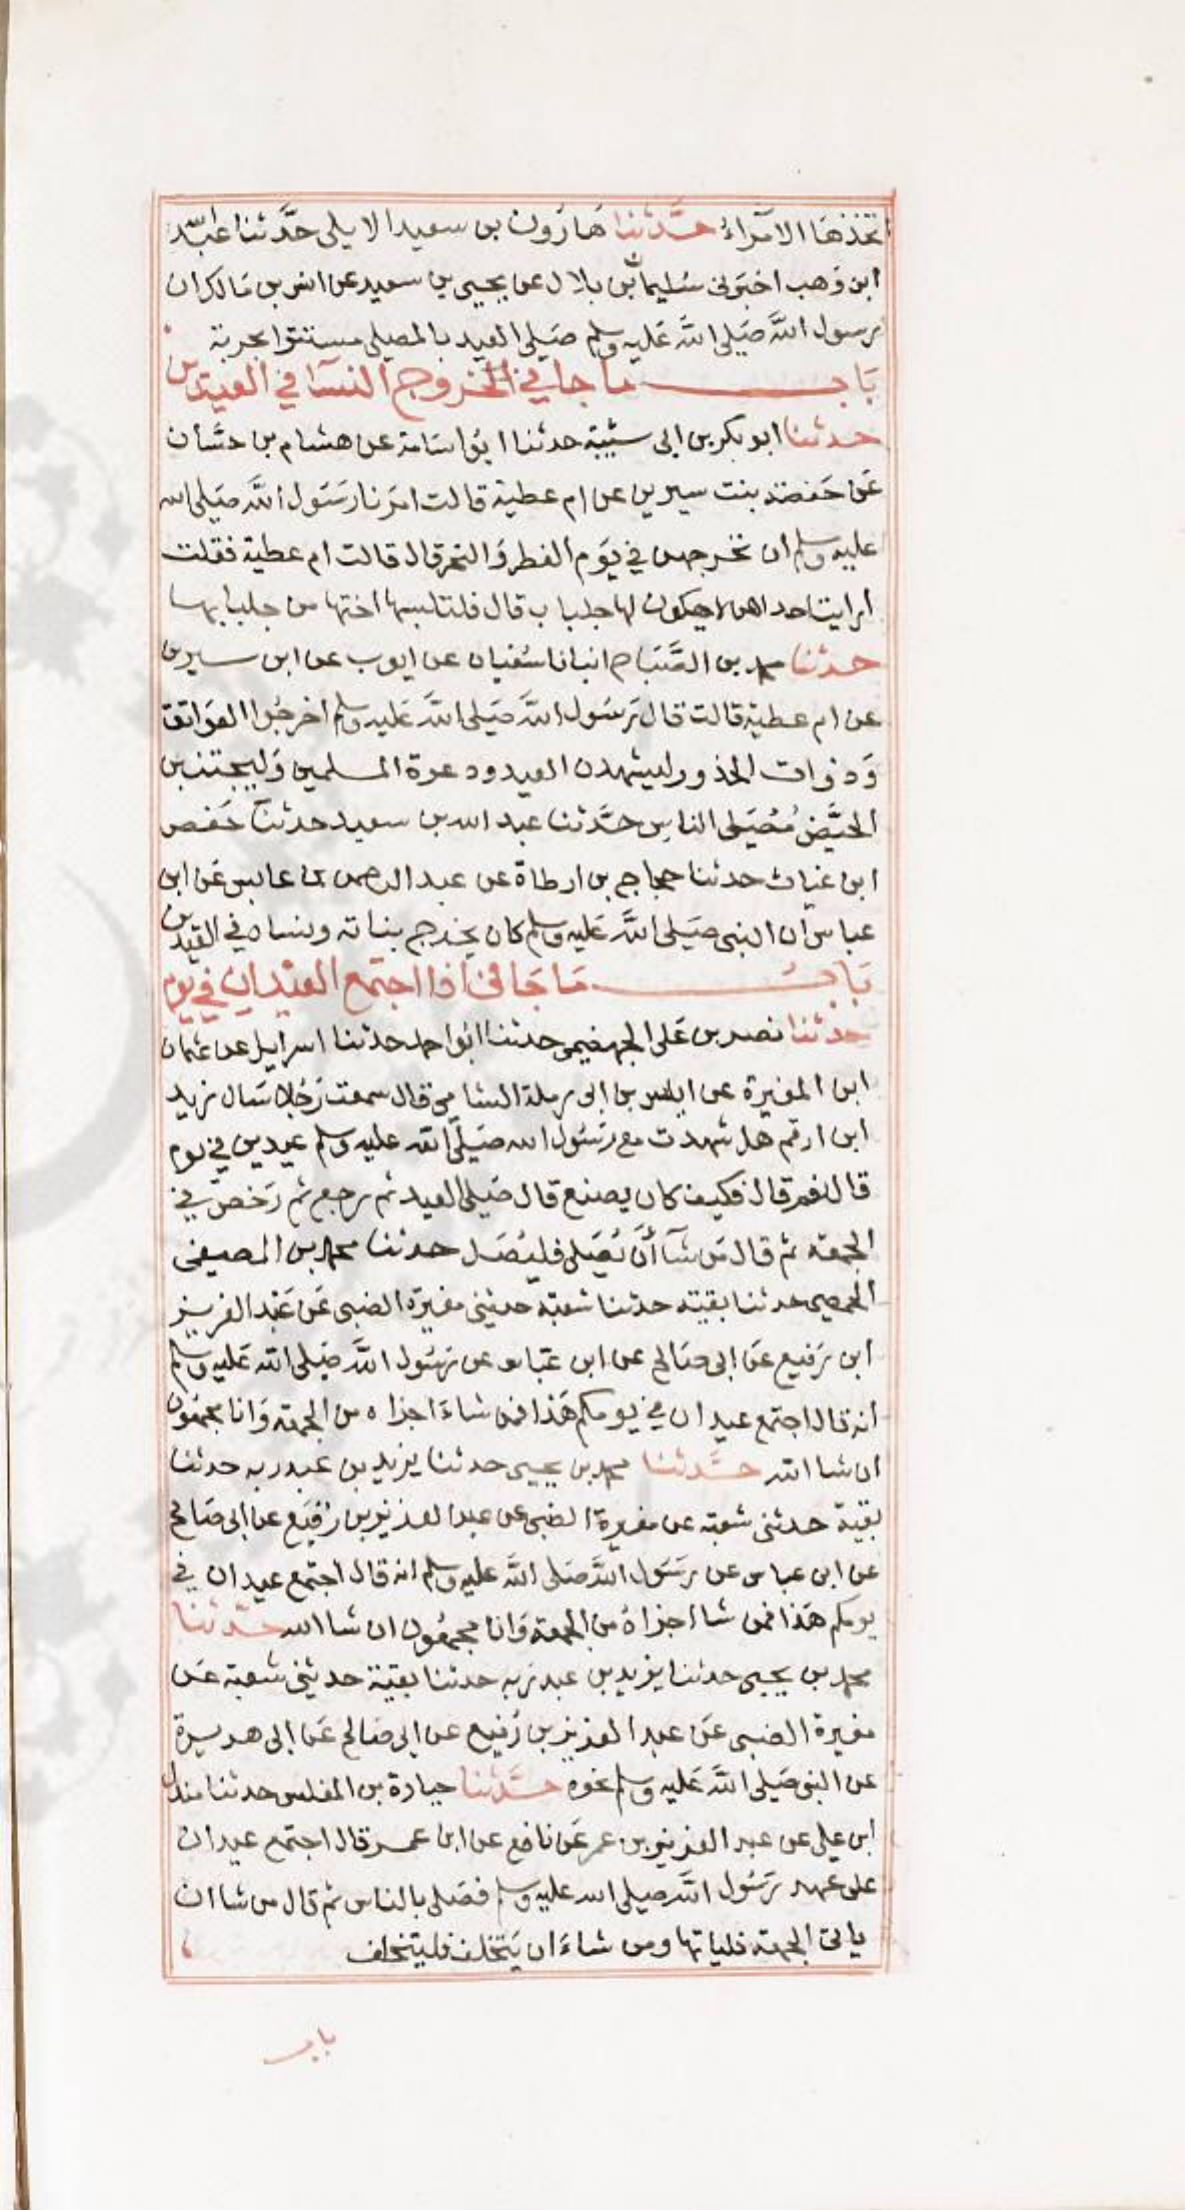 اتخذها الامراء حدثنا هارون بن سعيد الايلى حدثنا عبد الله
ابن وهب اخبرنى سليمان بن بلال عن يحيى بن سعيد عن انس بن مالك ان
رسول الله صلى الله عليه وسلم صلى العيد بالمصلى مستترا بحربة
باب ما جا في الخروج النسآ في العيدين
حدثنا ابو بكر بن ابى شيبة حدثنا ابو اسامة عن هشام بن حسان
عن حفصة بنت سيرين عن ام عطية قالت امرنا رسول الله صلى الله
عليه وسلم ان نخرجهن في يوم الفطر والنحر قال قالت ام عطية فقلت
ارايت احداهن لا يكون لها جلباب قال فلتلبسها اختها من جلبابها
حدثنا محمد بن الصباح انبانا سفيان عن ايوب عن ابن سيرين
عن ام عطية قالت قال رسول الله صلى الله عليه وسلم اخرجوا العواتق
وذوات الخدور ليشهدن العيد ودعوة المسلمين وليجتنبن
الحيض مصلى الناس حدثنا عبد الله بن سعيد حدثنا حفص
ابن غياث حدثنا حجاج بن ارطاة عن عبد الرحمن بن عابس عن ابن
عباس ان النبى صلى الله عليه وسلم كان يخرج بناته ونساه في العيدين
باب ما جا فى اذا اجتمع العيدان في يوم
حدثنا نصر بن على الجهضمى حدثنا ابو احمد حدثنا اسرايل عن عثمان
ابن المغيرة عن اياس بن ابى رملة الشامى قال سمعت رجلا سال زيد
ابن ارقم هل شهدت مع رسول الله صلى الله عليه وسلم عيدين في يوم
قال نعم قال فكيف كان يصنع قال صلى العيد ثم رجع ثم رخص في
الجمعة ثم قال من شآ أن يصلى فليصل حدثنا محمد بن المصيفى
الحمصى حدثنا بقية حدثنا شعبة حدثنى مغيرة الضبى عن عبد العزيز
ابن رفيع عن ابى صالح عن ابن عباس عن رسول الله صلى الله عليه وسلم
انه قال اجتمع عيدان في يومكم هذا فمن شاء اجزاه من الجمعة وانا مجمعون
ان شا الله حدثنا محمد بن يحيى حدثنا يزيد بن عبد ربه حدثنا
بقية حدثنى شعبة عن مغيرة الضبى عن عبد العزيز بن رفيع عن ابى صالح
عن ابن عباس عن رسول الله صلى الله عليه وسلم انه قال اجتمع عيدان في
يومكم هذا فمن شا اجزاه من الجمعة وانا مجمعون ان شا الله حدثنا
محمد بن يحيى حدثنا يزيد بن عبد ربه حدثنا بقية حدثنى شعبة عن
مغيرة الضبى عن عبد العزيز بن رفيع عن ابى صالح عن ابى هريرة
عن النبى صلى الله عليه وسلم نحوه حدثنا جبارة بن المغلس حدثنا مندل
ابن على عن عبد العزيز بن عمر عن نافع عن ابن عمر قال اجتمع عيدان
على عهد رسول الله صلى الله عليه وسلم فصلى بالناس ثم قال من شا ان
ياتى الجمعة فلياتها ومن شاء ان يتخلف فليتخلف
باب